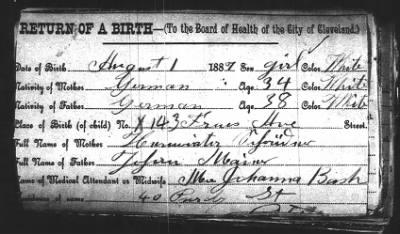 RETURN OF A BIRTH—(To the Board of Health of the City of Cleveland.)
Date of Birth August 1 1889 Sex girl Color White
Nativity of Mother German Age 34 Color White
Nativity of Father German Age 38 Color White
Place of Birth (of child) No. 143 Ave Street.
Full Name of Mother
Full Name of Father Mainer
Name of Medical Attendant or Midwife Mrs Johanna Bash
of same 40 St